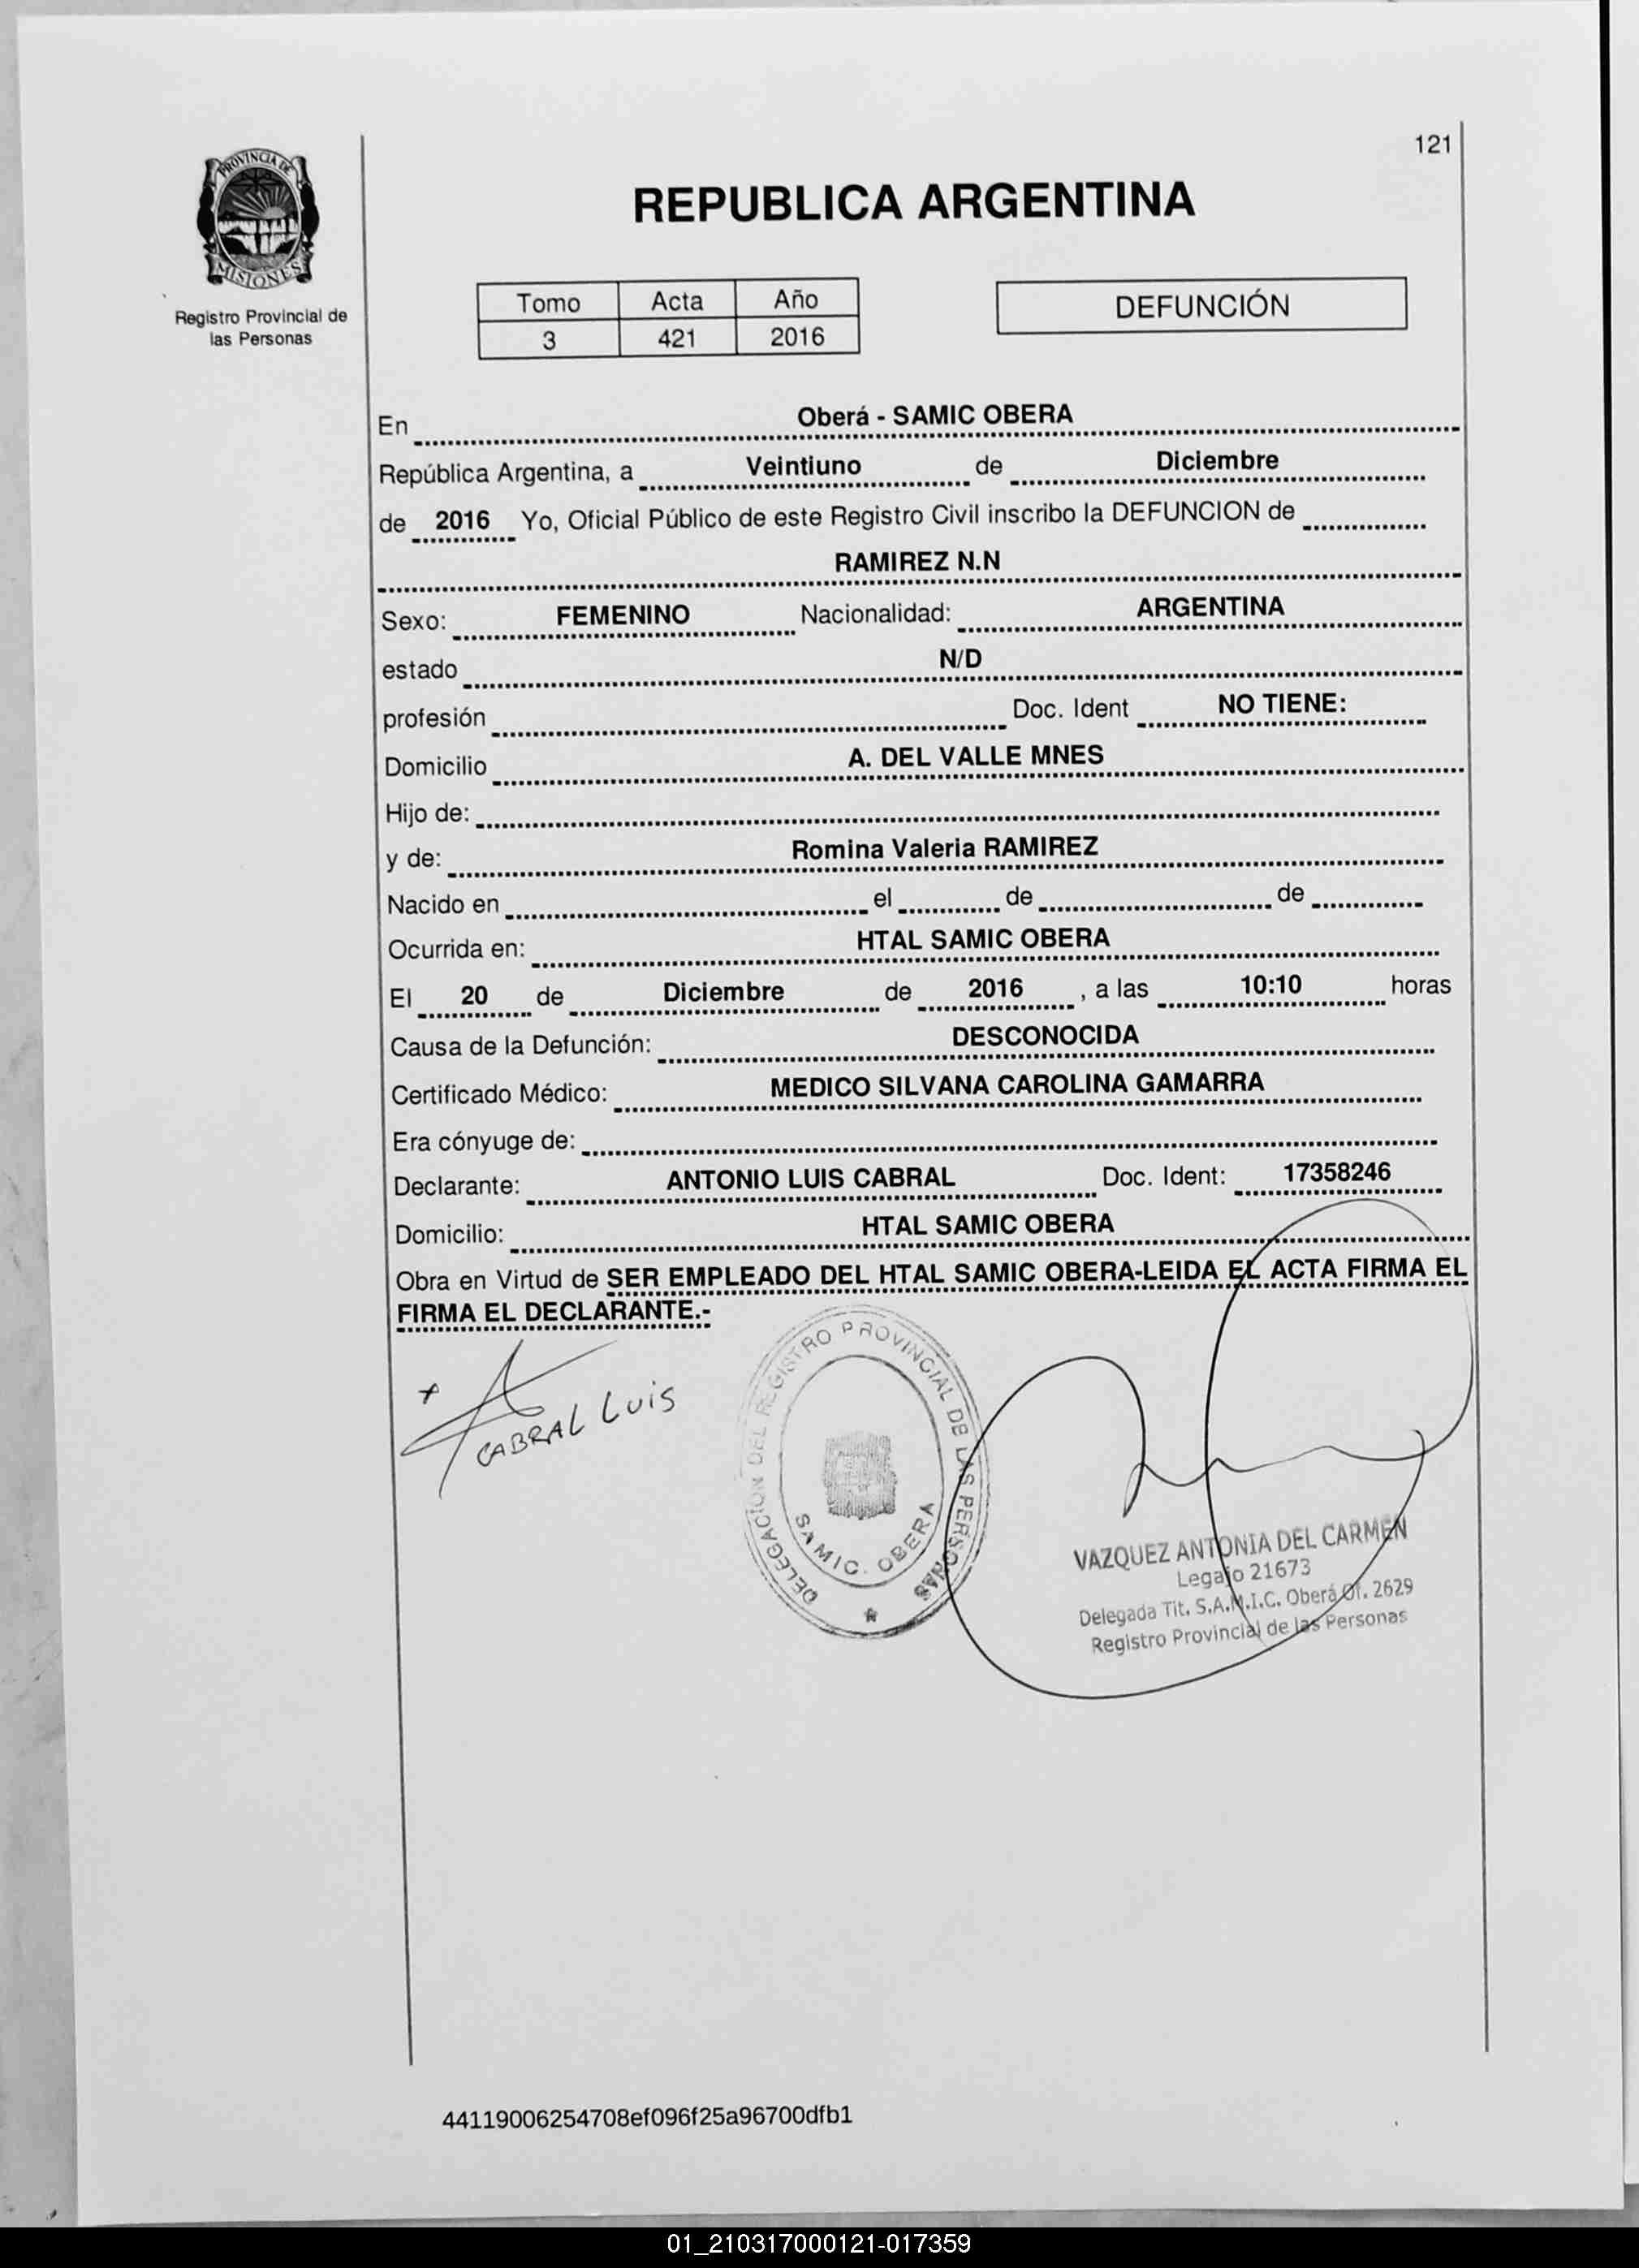 121
PROVINCIA DE
MISIONES
Registro Provincial de
las Personas
REPUBLICA ARGENTINA
Tomo Acta Año
3 421 2016
DEFUNCIÓN
En Oberá - SAMIC OBERA
República Argentina, a Veintiuno de Diciembre
de 2016 Yo, Oficial Público de este Registro Civil inscribo la DEFUNCION de
RAMIREZ N.N
Sexo: FEMENINO Nacionalidad: ARGENTINA
estado N/D
profesión Doc. Ident NO TIENE:
Domicilio A. DEL VALLE MNES
Hijo de:
y de: Romina Valeria RAMIREZ
Nacido en el de de
Ocurrida en: HTAL SAMIC OBERA
El 20 de Diciembre de 2016 , a las 10:10 horas
Causa de la Defunción: DESCONOCIDA
Certificado Médico: MEDICO SILVANA CAROLINA GAMARRA
Era cónyuge de:
Declarante: ANTONIO LUIS CABRAL Doc. Ident: 17358246
Domicilio: HTAL SAMIC OBERA
Obra en Virtud de SER EMPLEADO DEL HTAL SAMIC OBERA-LEIDA EL ACTA FIRMA EL
FIRMA EL DECLARANTE.-
CABRAL Luis
DELEGACION DEL REGISTRO PROVINCIAL DE LAS PERSONAS
SAMIC. OBERA
VAZQUEZ ANTONIA DEL CARMEN
Legajo 21673
Delegada Tit. S.A.M.I.C. Oberá Of. 2629
Registro Provincial de las Personas
44119006254708ef096f25a96700dfb1
01_210317000121-017359